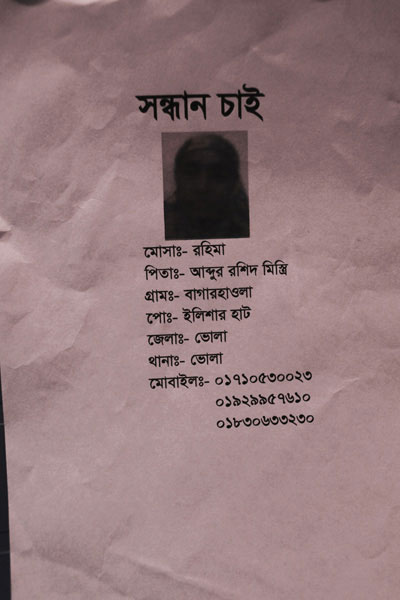 সন্ধান চাই
মোসাঃ- রহিমা
পিতাঃ- আব্দুর রশিদ মিস্ত্রি
গ্রামঃ- বাগারহাওলা
পোঃ- ইলিশার হাট
জেলাঃ- ভোলা
থানাঃ- ভোলা
মোবাইলঃ- ০১৭১০৫৩০০২৩
০১৯২৯৯৫৭৬১০
০১৮৩০৬৩৩২৩০